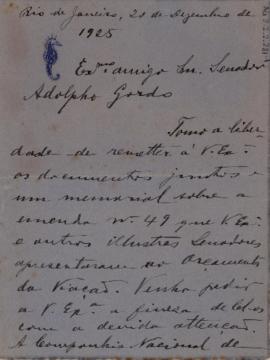 Rio de Janeiro, 20 de Dezembro de
1925
Exmo amigo Sr. Senador
Adolpho Gordo
Tomo a liber
dade de remetter á V. Exa
os documentos juntos e
um memorial sobre a
emenda nº 49 que V. Exa
e outros illustres Senadores
apresentaram ao Orçamento
da Viação. Venho pedir
a V. Exa a fineza de lel-os
com a devida attenção.
A Companhia Nacional de